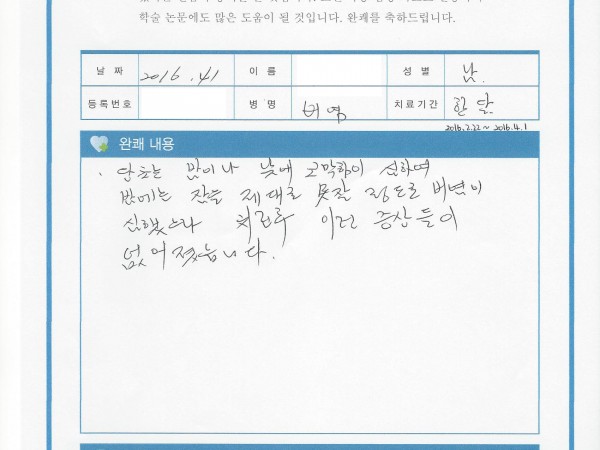 학술 논문에도 많은 도움이 될 것입니다. 완쾌를 축하드립니다.
날 짜 2016. 4.1 이 름 성 별 남.
등록번호 병 명 비염 치료기간 한달
2016.2.22 ~ 2016.4.1
완쾌 내용
당초는 밤이나 낮에 코막힘이 심하며
밤에는 잠을 제대로 못잘 정도로 비염이
심했으나 치료후 이런 증상들이
없어졌습니다.